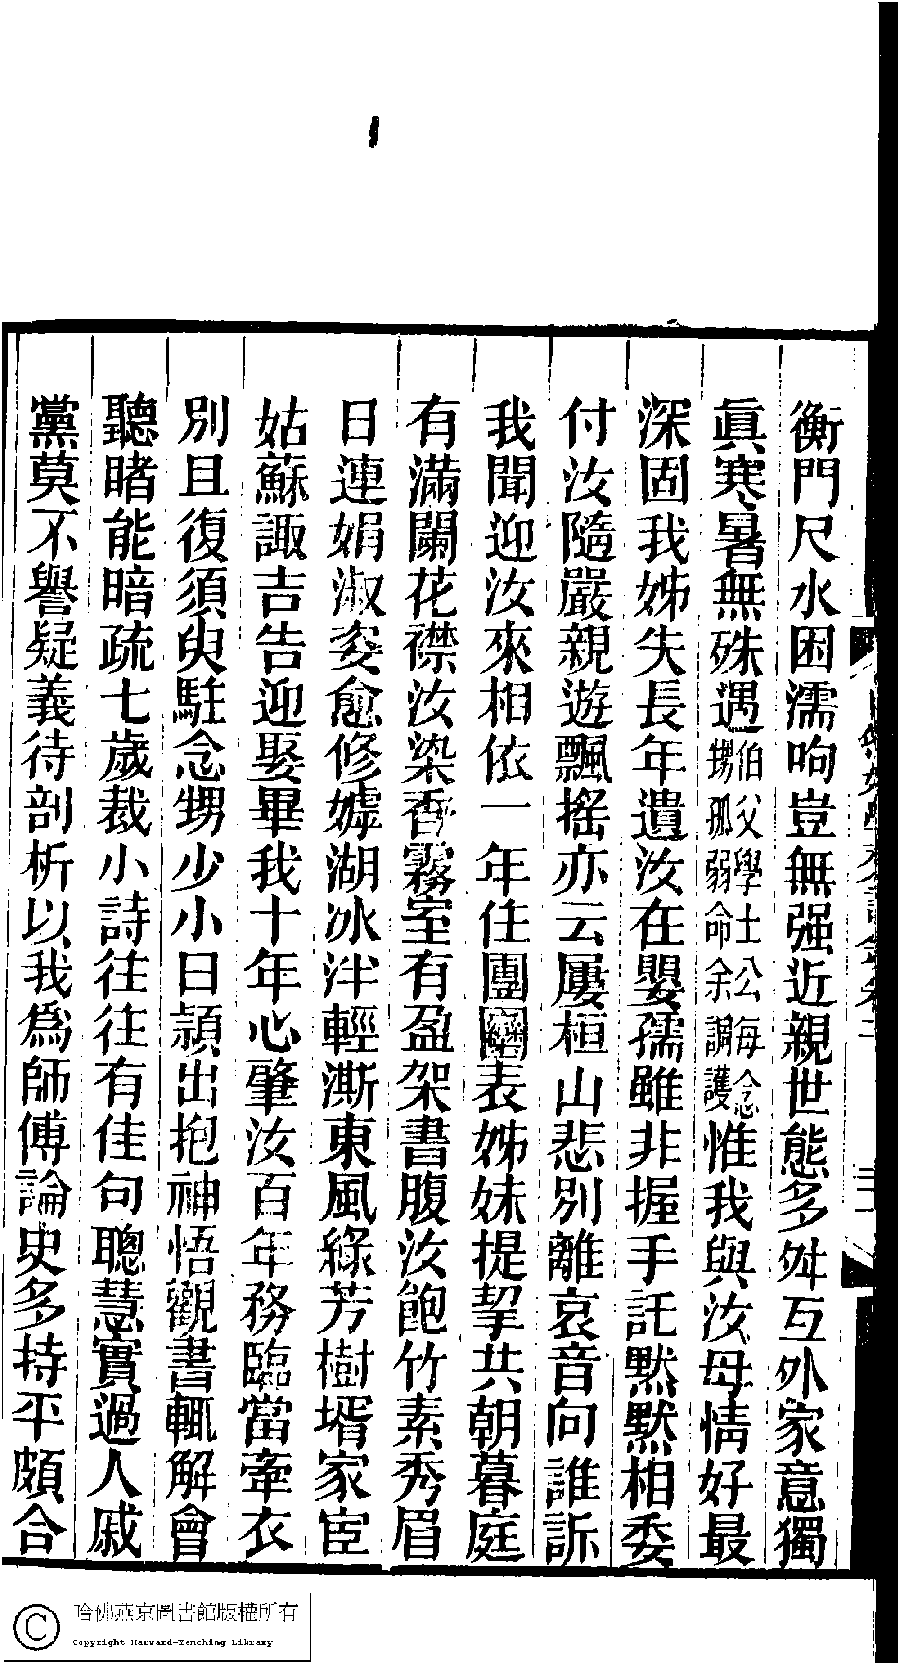 衡門尺水困濡呴豈無强近親世態多舛互外家意獨
眞寒暑無殊遇伯父學士公每念甥孤弱命余調護惟我與汝母情好最
深固我姊失長年遺汝在嬰孺雖非握手託默默相委
付汝隨嚴親遊飄搖亦云屢桓山悲別離哀音向誰訴
我聞迎汝來相依一年住團圞表姊妹提挈共朝暮庭
有滿闌花襟汝染香霧室有盈架書腹汝飽竹素秀眉
日連娟淑姿愈修嫭湖冰泮輕澌東風綠芳樹壻家宦
姑蘇諏吉告迎娶畢我十年心肇汝百年務臨當牽衣
別且復須臾駐念甥少小日潁出抱神悟觀書輒解會
聽睹能暗疏七歲裁小詩往往有佳句聰慧實過人戚
黨莫不譽疑義待剖析以我爲師傅論史多持平頗合
哈佛燕京圖書館版權所有
Copyright Harvard-Yenching Library